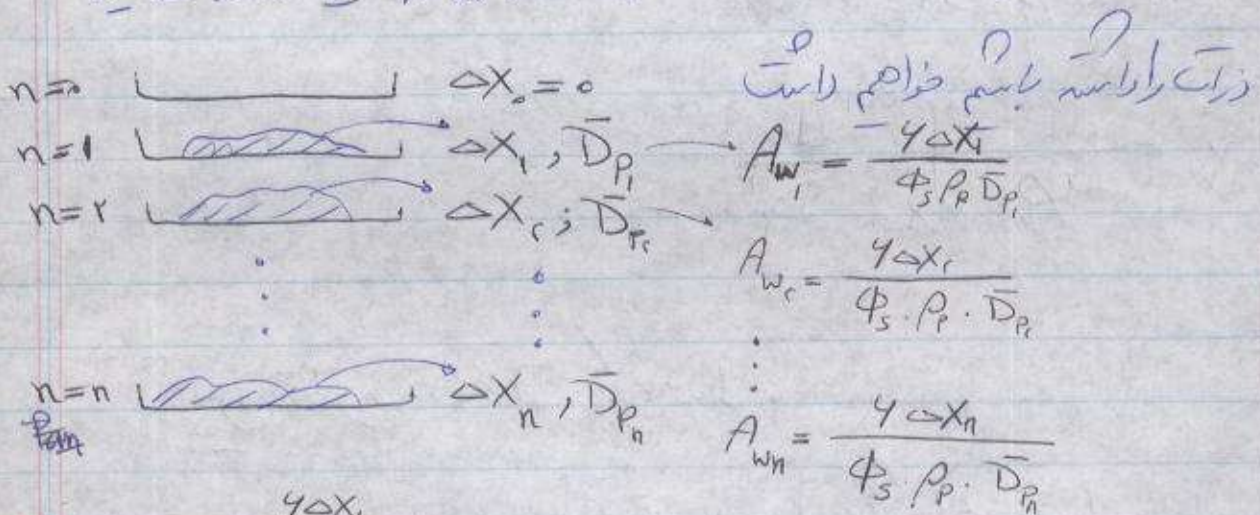 ذرات را داشته باشم خواهم داشت
n=0 ΔX₀ = 0
n=1 ΔX₁ , D̄p₁ → A_w₁ = ۶ΔX₁ / Φs ρp D̄p₁
n=۲ ΔX₂ ; D̄p₂
A_w₂ = ۶ΔX₂ / Φs . ρp . D̄p₂
n=n ΔXₙ , D̄pₙ
A_wn = ۶ΔXₙ / Φs . ρp . D̄pₙ
۶ΔX₁